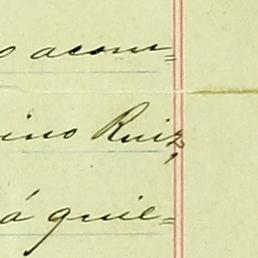 o acom=
ino Ruiz,
á quie=